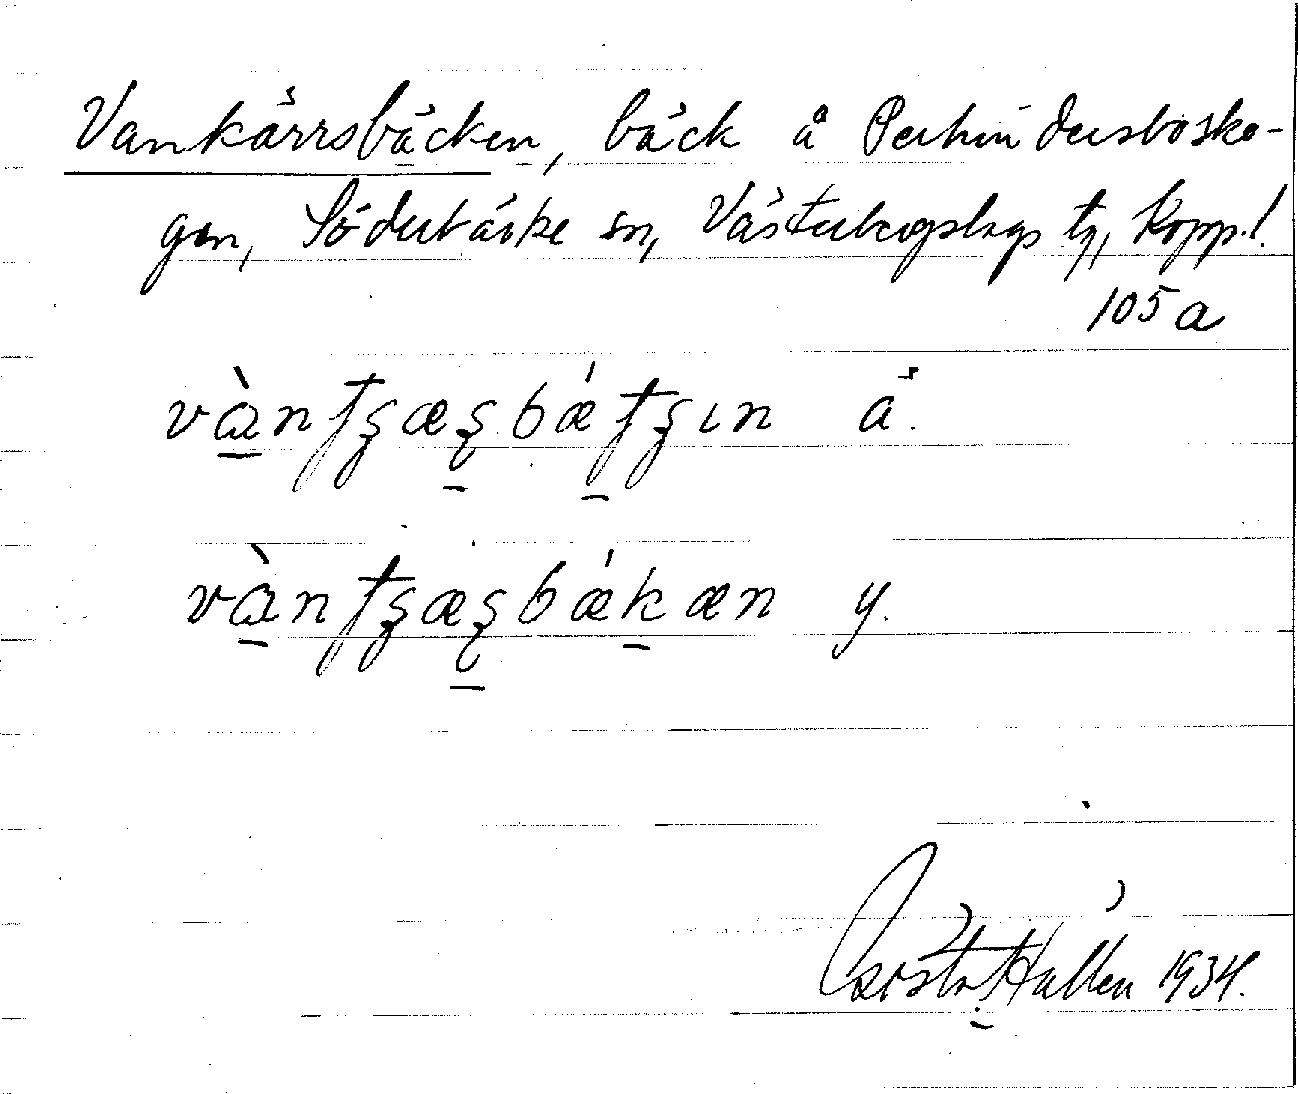 Vankärrsbäcken, bäck å Perhindersbosko-
gen, Söderbärke sn, Västerbergslags tg, Kopp.l.
105 a
vànʈʂæʂbǽʈʂın å.
vànʈʂæʂbǽkæn y.
Gösta Hallén 1934.